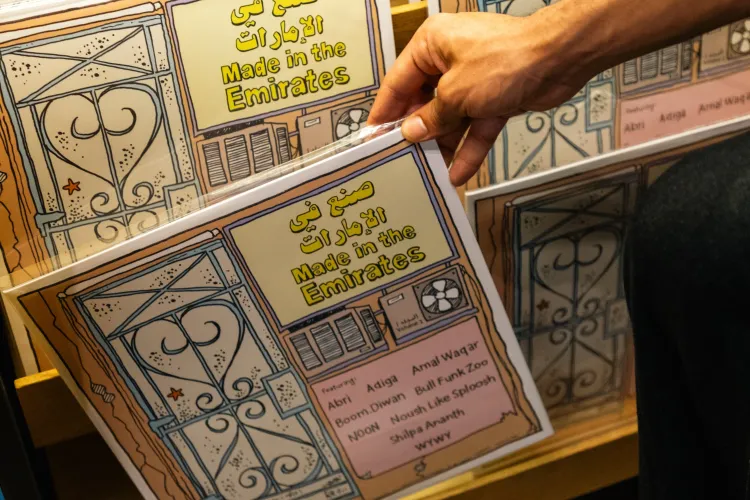 صنع في
الإمارات
Made in the
Emirates
صنع في
الإمارات
Made in the
Emirates
Featuring:
Abri Adiga Amal Waqar
Boom.Diwan Bull Funk Zoo
NOON Noush Like Sploosh
Shilpa Ananth
WYWY
Featuring:
Abri Adiga Amal Waqar